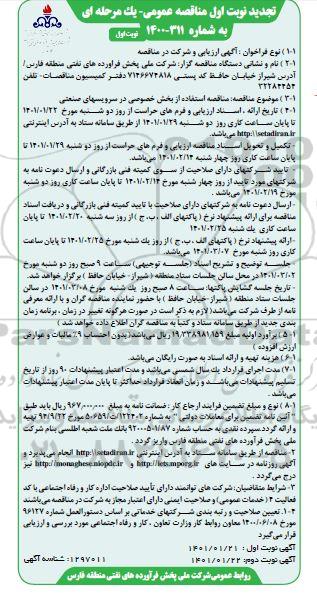 تجدید نوبت اول مناقصه عمومی- یک مرحله ای
به شماره ۳۱۱-۱۴۰۰
نوبت اول
۱-۱) نوع فراخوان : آگهی ارزیابی و شرکت در مناقصه
۲-۱) نام و نشانی دستگاه مناقصه گزار: شرکت ملی پخش فرآورده های نفتی منطقه فارس/
آدرس شیراز خیابان حافظ کد پستی ۷۱۴۶۶۷۴۸۱۸ دفتر کمیسیون مناقصات- تلفن
۳۲۲۸۴۴۵۴
۳-۱) موضوع مناقصه: مناقصه استفاده از بخش خصوصی در سرویسهای صنعتی
۴-۱) تاریخ ارائه ، اسناد ارزیابی و فرم های حراست از روز دو شنبه مورخ ۱۴۰۱/۰۱/۲۲
تا پایان ساعت کاری روز دو شنبه ۱۴۰۱/۰۱/۲۹ از طریق سامانه ستاد به آدرس اینترنتی
http://setadiran.ir می باشد.
- تکمیل و تحویل اسناد مناقصه ارزیابی و فرم های حراست از روز دو شنبه ۱۴۰۱/۰۱/۲۹ تا
پایان ساعت کاری روز چهار شنبه ۱۴۰۱/۰۲/۱۴ می باشد.
- تایید شرکتهای دارای صلاحیت از سوی کمیته فنی بازرگانی و ارسال دعوت نامه به
شرکتهای مورد تایید از روز چهار شنبه مورخ ۱۴۰۱/۰۲/۱۴ تا پایان ساعت کاری روز دو شنبه
مورخ ۱۴۰۱/۰۲/۱۹ می باشد.
- ارسال دعوت نامه به شرکتهای دارای صلاحیت با تایید کمیته فنی بازرگانی و دریافت اسناد
مناقصه برای ارائه پیشنهاد نرخ ( پاکتهای الف ، ب، ج ) از روز سه شنبه ۱۴۰۱/۰۲/۲۰ تا پایان
ساعت کاری یک شنبه ۱۴۰۱/۰۲/۲۵
- ارائه پیشنهاد نرخ ( پاکتهای الف ، ب، ج ) از روز یک شنبه مورخ ۱۴۰۱/۰۲/۲۵ تا پایان ساعت
کاری روز شنبه مورخ ۱۴۰۱/۰۳/۰۷ می باشد.
- جلسه توضیح و تشریح اسناد (جلسه توجیهی) ساعت ۹ صبح روز دو شنبه مورخ
۱۴۰۱/۰۳/۰۲ در محل سالن جلسات ستاد منطقه ( شیراز- خیابان حافظ ) برگزار خواهد شد.
- تاریخ جلسه گشایش پاکتها: ساعت ۸ صبح روز یک شنبه مورخ ۱۴۰۱/۰۳/۰۸ در سالن
جلسات ستاد منطقه (شیراز -خیابان حافظ ) با حضور نماینده مناقصه گران و با ارائه معرفی
نامه از طرف شرکت می باشد( لازم به ذکر است در صورت هرگونه تغییر در زمان ، برنامه زمان
بندی جدید از طریق سامانه ستاد و کتباً به مناقصه گران اطلاع داده خواهد شد )
۵-۱) برآورد اولیه مبلغ ۱۹٫۳۳۸٫۹۸۱٫۱۵۹ ریال می باشد( بدون احتساب ۹٪ مالیات و عوارض
ارزش افزوده )
۶-۱) هزینه تهیه و ارائه اسناد به صورت رایگان می باشد.
۷-۱) مدت اجرای قرارداد یک سال شمسی می باشد و مدت اعتبار پیشنهادات ۹۰ روز از تاریخ
تسلیم پیشنهادات می باشد و زمان انعقاد قرارداد حداکثر تا پایان مدت اعتبار پیشنهادات
می باشد.
۸-۱) نوع و مبلغ تضمین فرایند ارجاع کار : ضمانت نامه به مبلغ ۹۶۷٫۰۰۰٫۰۰۰ ریال باید طبق
- آئین نامه تضمین برای معاملات دولتی به شماره ۱۲۳۴۰۲/ت۵۰۶۵۹ هـ مورخ ۹۴/۹/۲۲ تهیه
و ارائه گردد.سپرده نقدی به حساب شماره ۹۲۰۰۰۵۰۱/۸۷ بانک ملت شعبه اطلسی بنام شرکت
ملی پخش فرآورده های نفتی منطقه فارس واریز گردد .
۲- مناقصه از طریق سامانه ستاد به آدرس اینترنتی http://setadiran.ir انجام می پذیرد و
آگهی روزنامه در سایت های http://iets.mporg.ir و http://monaghese.niopdc.ir نیز
درج می گردد .
۳- شرایط متقاضیان: شرکت های توانمند دارای تأیید صلاحیت اداره کار و رفاه اجتماعی با کد
فعالیت ۴ (خدمات عمومی) و صلاحیت ایمنی دارای اعتبار مجاز به شرکت در مناقصه می باشند
۴-۱۰. تعیین صلاحیت و رتبه بندی شرکتهای خدماتی بر اساس دستورالعمل شماره ۹۶۱۲۷
مورخ ۱۴۰۰/۰۶/۰۸ معاون روابط کار وزارت تعاون ، کار و رفاه اجتماعی مورد بررسی و ارزیابی
قرار می گیرد
آگهی نوبت اول : ۱۴۰۱/۰۱/۲۱
آگهی نوبت دوم: ۱۴۰۱/۰۱/۲۲
۱۲۹۷۰۱۱: شناسه آگهی
روابط عمومی شرکت ملی پخش فرآورده های نفتی منطقه فارس